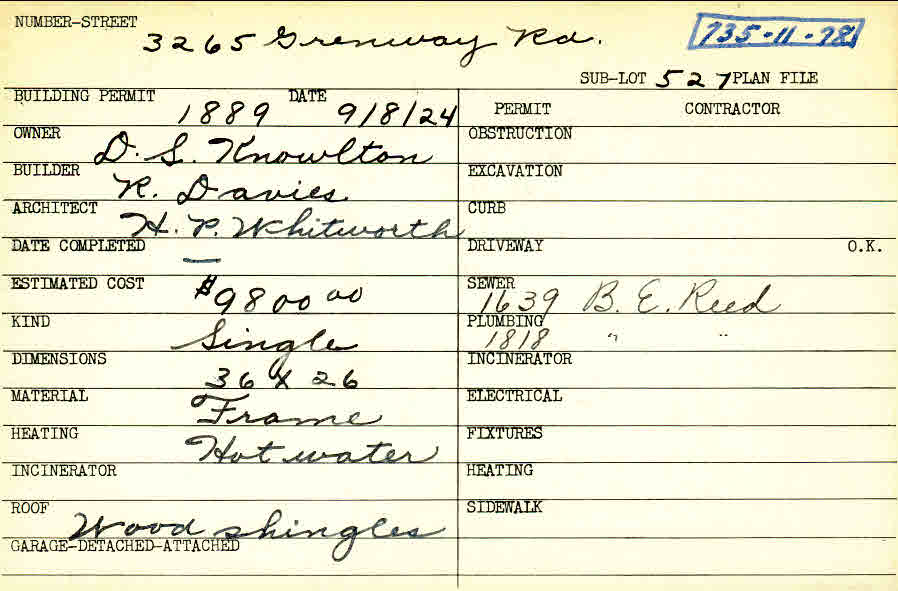 NUMBER-STREET 3265 Grenway Rd. 735-11-78
SUB-LOT 527 PLAN FILE
BUILDING PERMIT 1889 DATE 9/8/24 PERMIT CONTRACTOR
OWNER D. S. Knowlton OBSTRUCTION
BUILDER R. Davies EXCAVATION
ARCHITECT H. P. Whitworth CURB
DATE COMPLETED — DRIVEWAY O.K.
ESTIMATED COST $9800 00 SEWER 1639 B. E. Reed
KIND Single PLUMBING 1818 " "
DIMENSIONS 36 X 26 INCINERATOR
MATERIAL Frame ELECTRICAL
HEATING Hot water FIXTURES
INCINERATOR HEATING
ROOF Wood shingles SIDEWALK
GARAGE-DETACHED-ATTACHED